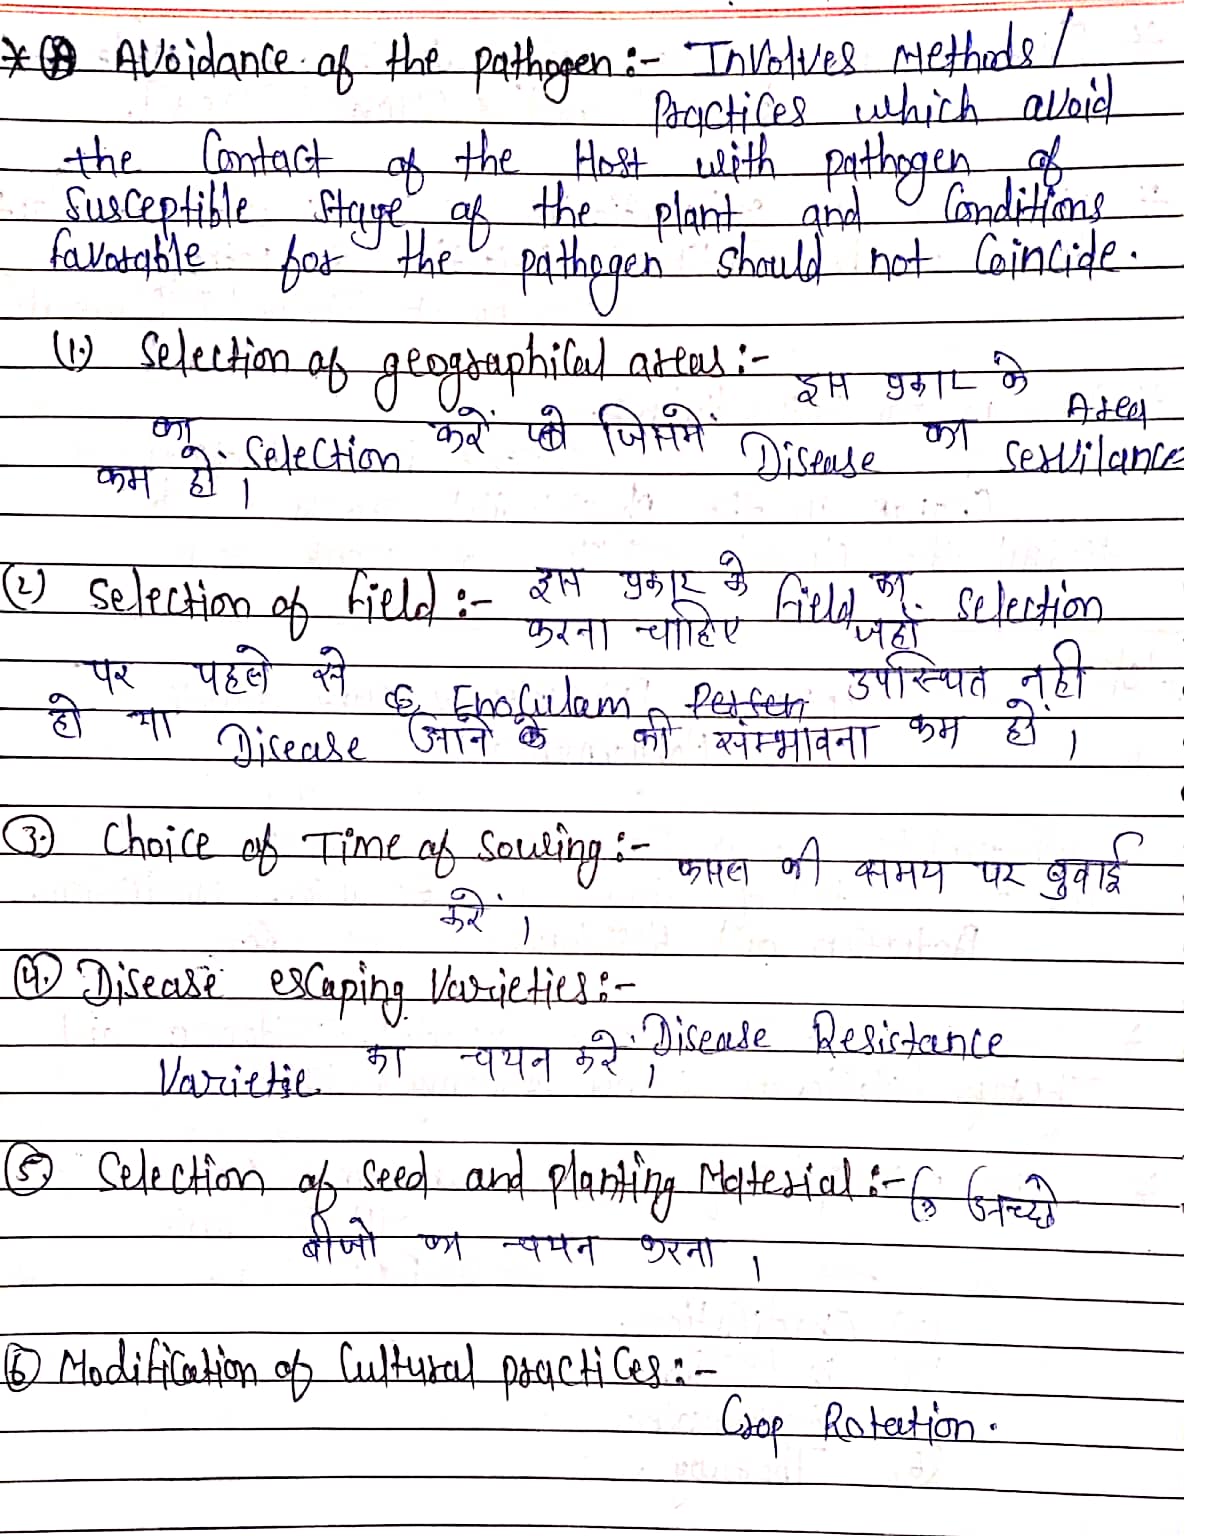 * Ⓐ Avoidance of the pathogen :- Involves Methods /
Practices which avoid
the Contact of the Host with pathogen of
Susceptible Stage of the plant and Conditions
favorable for the pathogen should not Coincide.
(1.) Selection of geographical areas :- इस प्रकार के Area
का Selection करें जिसमें Disease का Servilance
कम हो ।
(2) Selection of field :- इस प्रकार के field का Selection
करना चाहिए जहाँ
पर पहले से Enoculam उपस्थित नही
हो या Disease आने की संम्भावना कम हो ।
(3.) Choice of Time of Souling :- फसल की समय पर बुवाई
करें ।
(4.) Disease escaping Varieties :-
Disease Resistance
Varietie का चयन करे ।
(5) Selection of seed and planting Material :- अच्छे
बीजो का चयन करना ।
(6) Modification of Cultural practices :-
Crop Rotation.